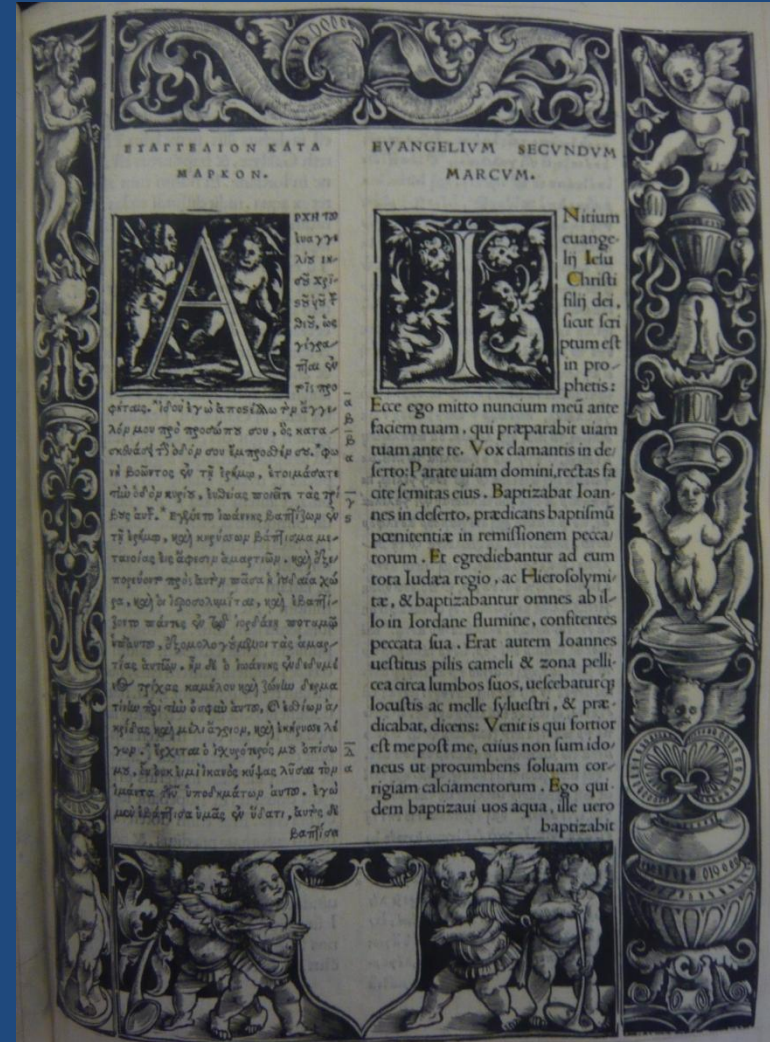 ΕΥΑΓΓΕΛΙΟΝ ΚΑΤΑ
ΜΑΡΚΟΝ.
ΑΡΧΗ τοῦ
ἐυαγγε
λίου ιη-
σοῦ χρι-
σοῦ ὑοῦ τ
θεοῦ, ὡς
γέγρα-
πται ἐν
τοῖς προ
φήταις. ἰδοὺ ἐγὼ ἀποστέλλω τὸν ἄγγε-
λόν μου πρὸ προσώπου σου, ὃς κατα-
σκευάσει τὴν ὁδόν σου ἔμπροσθέν σου. φω
νὴ βοῶντος ἐν τῇ ἐρήμῳ, ἑτοιμάσατε
τὴν ὁδὸν κυρίου, ἐυθείας ποιεῖτε τὰς τρί
βους αυτ. Εγένετο ἰωάννης βαπτίζων ἐν
τῇ ἐρήμῳ, καὶ κηρύσσων βάπτισμα με-
τανοίας εἰς ἄφεσιν ἁμαρτιῶν, καὶ ἐξε-
πορεύοντο πρὸς ἀυτὸν πᾶσα ἡ ἰουδαία χώ
ρα, καὶ οἱ ἱεροσολυμίται, καὶ ἐβαπτί-
ζοντο πάντες ἐν τῷ ἰορδάνῃ ποταμῷ
ὑπ' ἀυτοῦ, ἐξομολογούμενοι τὰς ἁμαρ-
τίας ἀυτῶν. ἦν δὲ ὁ ἰωάννης ἐνδεδυμέ
νος τρίχας καμήλου καὶ ζώνην δερμα
τίνην περὶ τὴν ὀσφὺν ἀυτοῦ, καὶ ἐσθίων ἀ-
κρίδας καὶ μέλι ἄγριον, καὶ ἐκήρυσσε λέ
γων. ἔρχεται ὁ ἰσχυρότερός μου ὀπίσω
μου, οὗ οὐκ εἰμὶ ἱκανὸς κύψας λῦσαι τὸν
ἱμάντα τῶν ὑποδημάτων ἀυτοῦ. ἐγὼ
μὲν ἐβάπτισα ὑμᾶς ἐν ὕδατι, ἀυτὸς δὲ
βαπτίσει
EVANGELIVM SECVNDVM
MARCVM.
INitium
euange-
lij Iesu
Christi
filij dei,
sicut scri
ptum est
in pro-
phetis:
Ecce ego mitto nuncium meū ante
faciem tuam, qui præparabit uiam
tuam ante te. Vox clamantis in de-
serto: Parate uiam domini, rectas fa
cite semitas eius. Baptizabat Ioan-
nes in deserto, prædicans baptismū
pœnitentiæ in remissionem pecca-
torum. Et egrediebantur ad eum
tota Iudæa regio, ac Hierosolymi-
tæ, & baptizabantur omnes ab il-
lo in Iordane flumine, confitentes
peccata sua. Erat autem Ioannes
uestitus pilis cameli & zona pelli-
cea circa lumbos suos, uescebaturq;
locustis ac melle syluestri, & præ-
dicabat, dicens: Venit is qui fortior
est me post me, cuius non sum ido-
neus ut procumbens soluam cor-
rigiam calciamentorum. Ego qui-
dem baptizaui uos aqua, ille uero
baptizabit